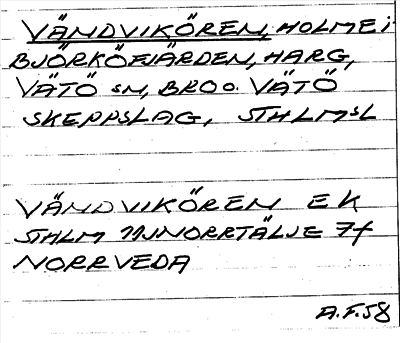 VÄNDVIKÖREN, HOLME i
BJÖRKÖFJÄRDEN, HARG,
VÄTÖ SN, BRO o. VÄTÖ
SKEPPSLAG, STHLMSL
VÄNDVIKÖREN EK
STHLM 11J NORRTÄLJE 7f
NORRVEDA
A.F.58